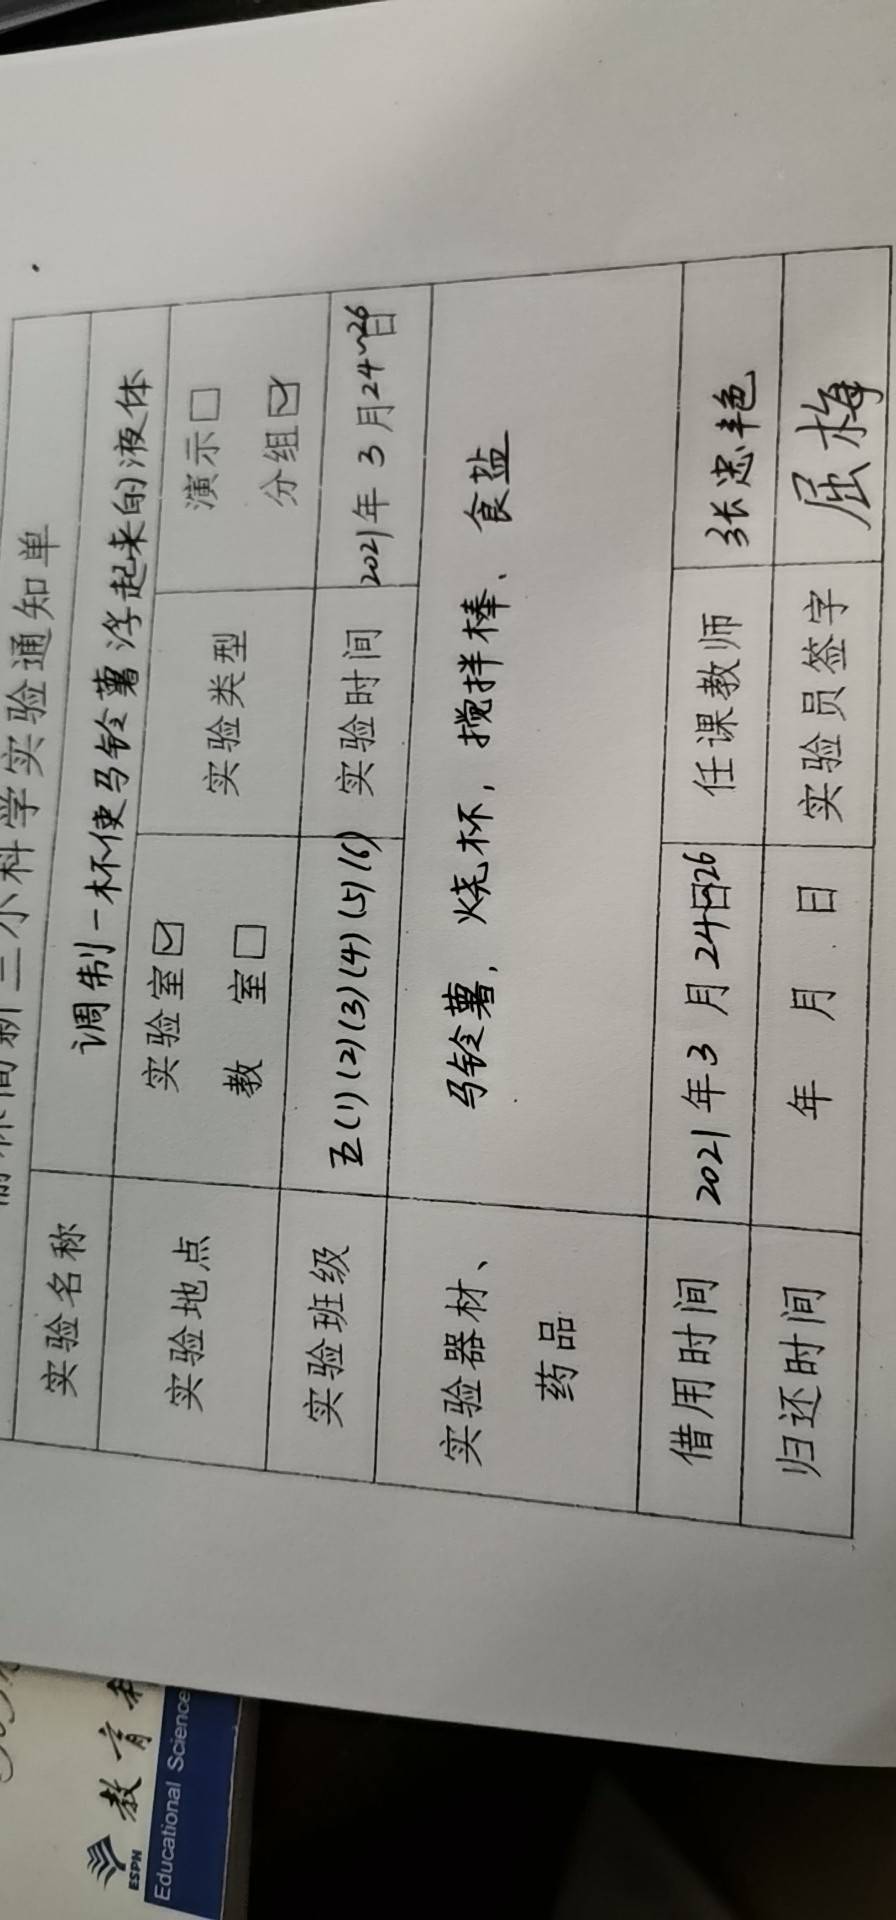 三小科学实验通知单
实验名称 调制一杯使马铃薯浮起来的液体
实验地点 实验室☑ 教 室□ 实验类型 演示□ 分组☑
实验班级 五(1)(2)(3)(4)(5)(6) 实验时间 2021年3月24~26日
实验器材、药品 马铃薯，烧杯，搅拌棒、食盐
借用时间 2021年3月24日26 任课教师 张忠艳
归还时间 年 月 日 实验员签字 屈梅
ESPH 教育
Educational Science